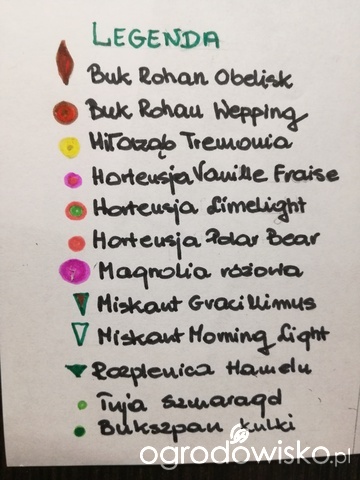 LEGENDA
Buk Rohan Obelisk
Buk Rohan Wepping
Miłorząb Tremonia
Hortensja Vanille Fraise
Hortensja Limelight
Hortensja Polar Bear
Magnolia różowa
Miskant Gracillimus
Miskant Morning Light
Rozplenica Hameln
Tuja Szmaragd
Bukszpan kulki
ogrodowisko.pl